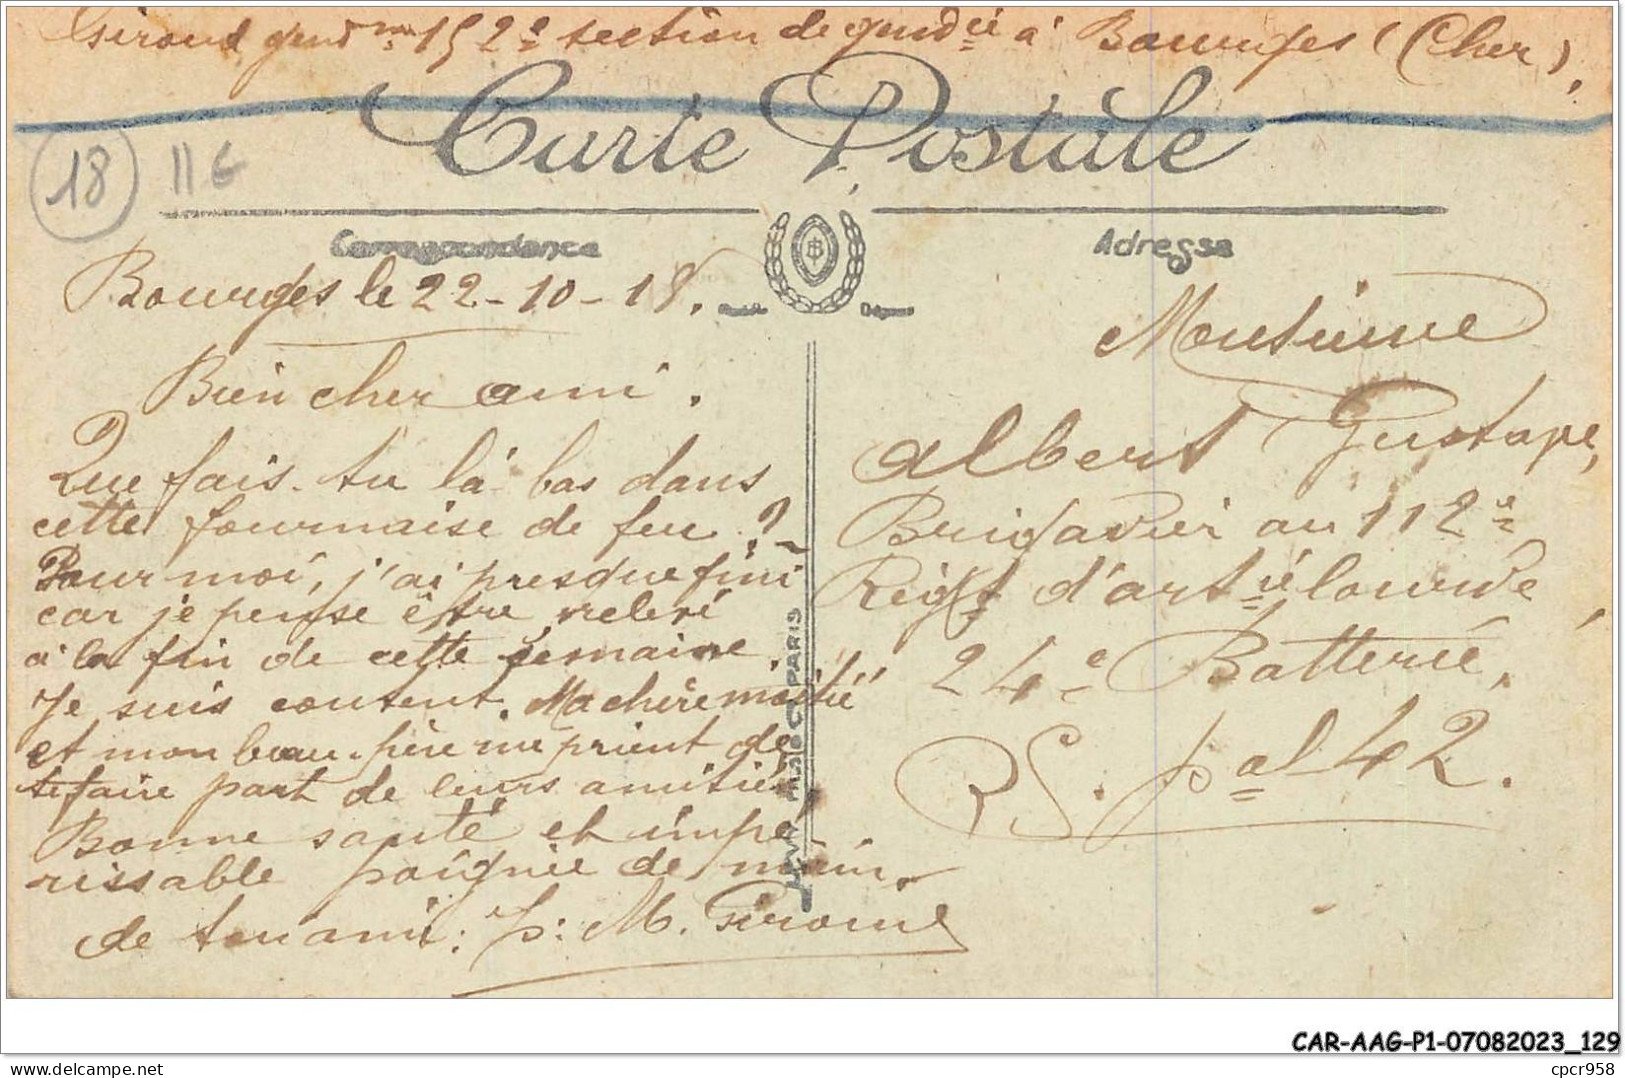 Giroud gend.me 152e section de gend.ie à Bourges (Cher),
Carte Postale
18 11 G
Correspondance
Adresse
Bourges le 22-10-18.
Bien cher ami.
Que fais-tu là bas dans
cette fournaise de feu ?
Pour moi, j'ai presque fini
car je pense être relevé
à la fin de cette semaine.
Je suis content. Ma chère moitié
et mon beau-père me prient de
te faire part de leurs amitiés,
Bonne santé et impé
rissable poignée de main.
de ton ami: J: M. Giroud
Monsieur
Albert Gustave,
Brigadier au 112e
Regt d'artie lourde,
24e Batterie,
S. pal 42.
PARIS
CAR-AAG-P1-07082023_129
cpcr958